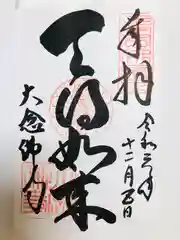 奉拝
令和三年
十二月五日
天得如来
大念佛寺